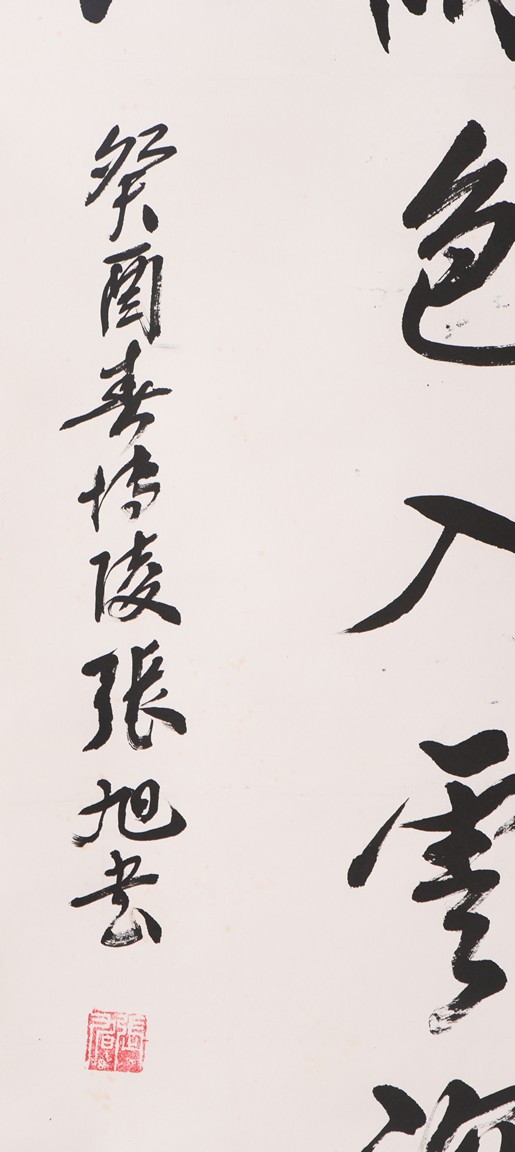 色入雲
癸酉春博陵張旭書